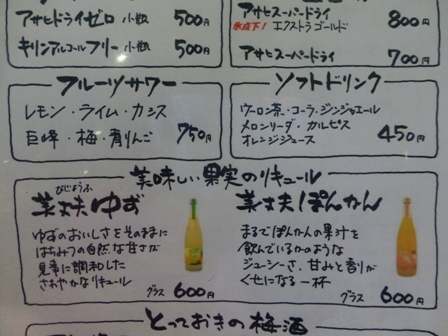 アサヒドライゼロ 小瓶 500円
キリンアルコールフリー 小瓶 500円
アサヒスーパードライ 800円
氷点下! エクストラゴールド
アサヒスーパードライ 700円
フルーツサワー
レモン・ライム・カシス
巨峰・梅・青りんご 750円
ソフトドリンク
ウーロン茶・コーラ・ジンジャエール
メロンソーダ・カルピス
オレンジジュース 450円
美味しい果実のリキュール
びじょうふ
美丈夫ゆず
ゆずのおいしさをそのままに
はちみつの自然な甘さが
見事に調和した
さわやかなリキュール
グラス 600円
美丈夫ぽんかん
まるでぽんかんの果汁を
飲んでいるかのような
ジューシーさ、甘みと香りが
くせになる一杯
グラス 600円
とっておきの梅酒